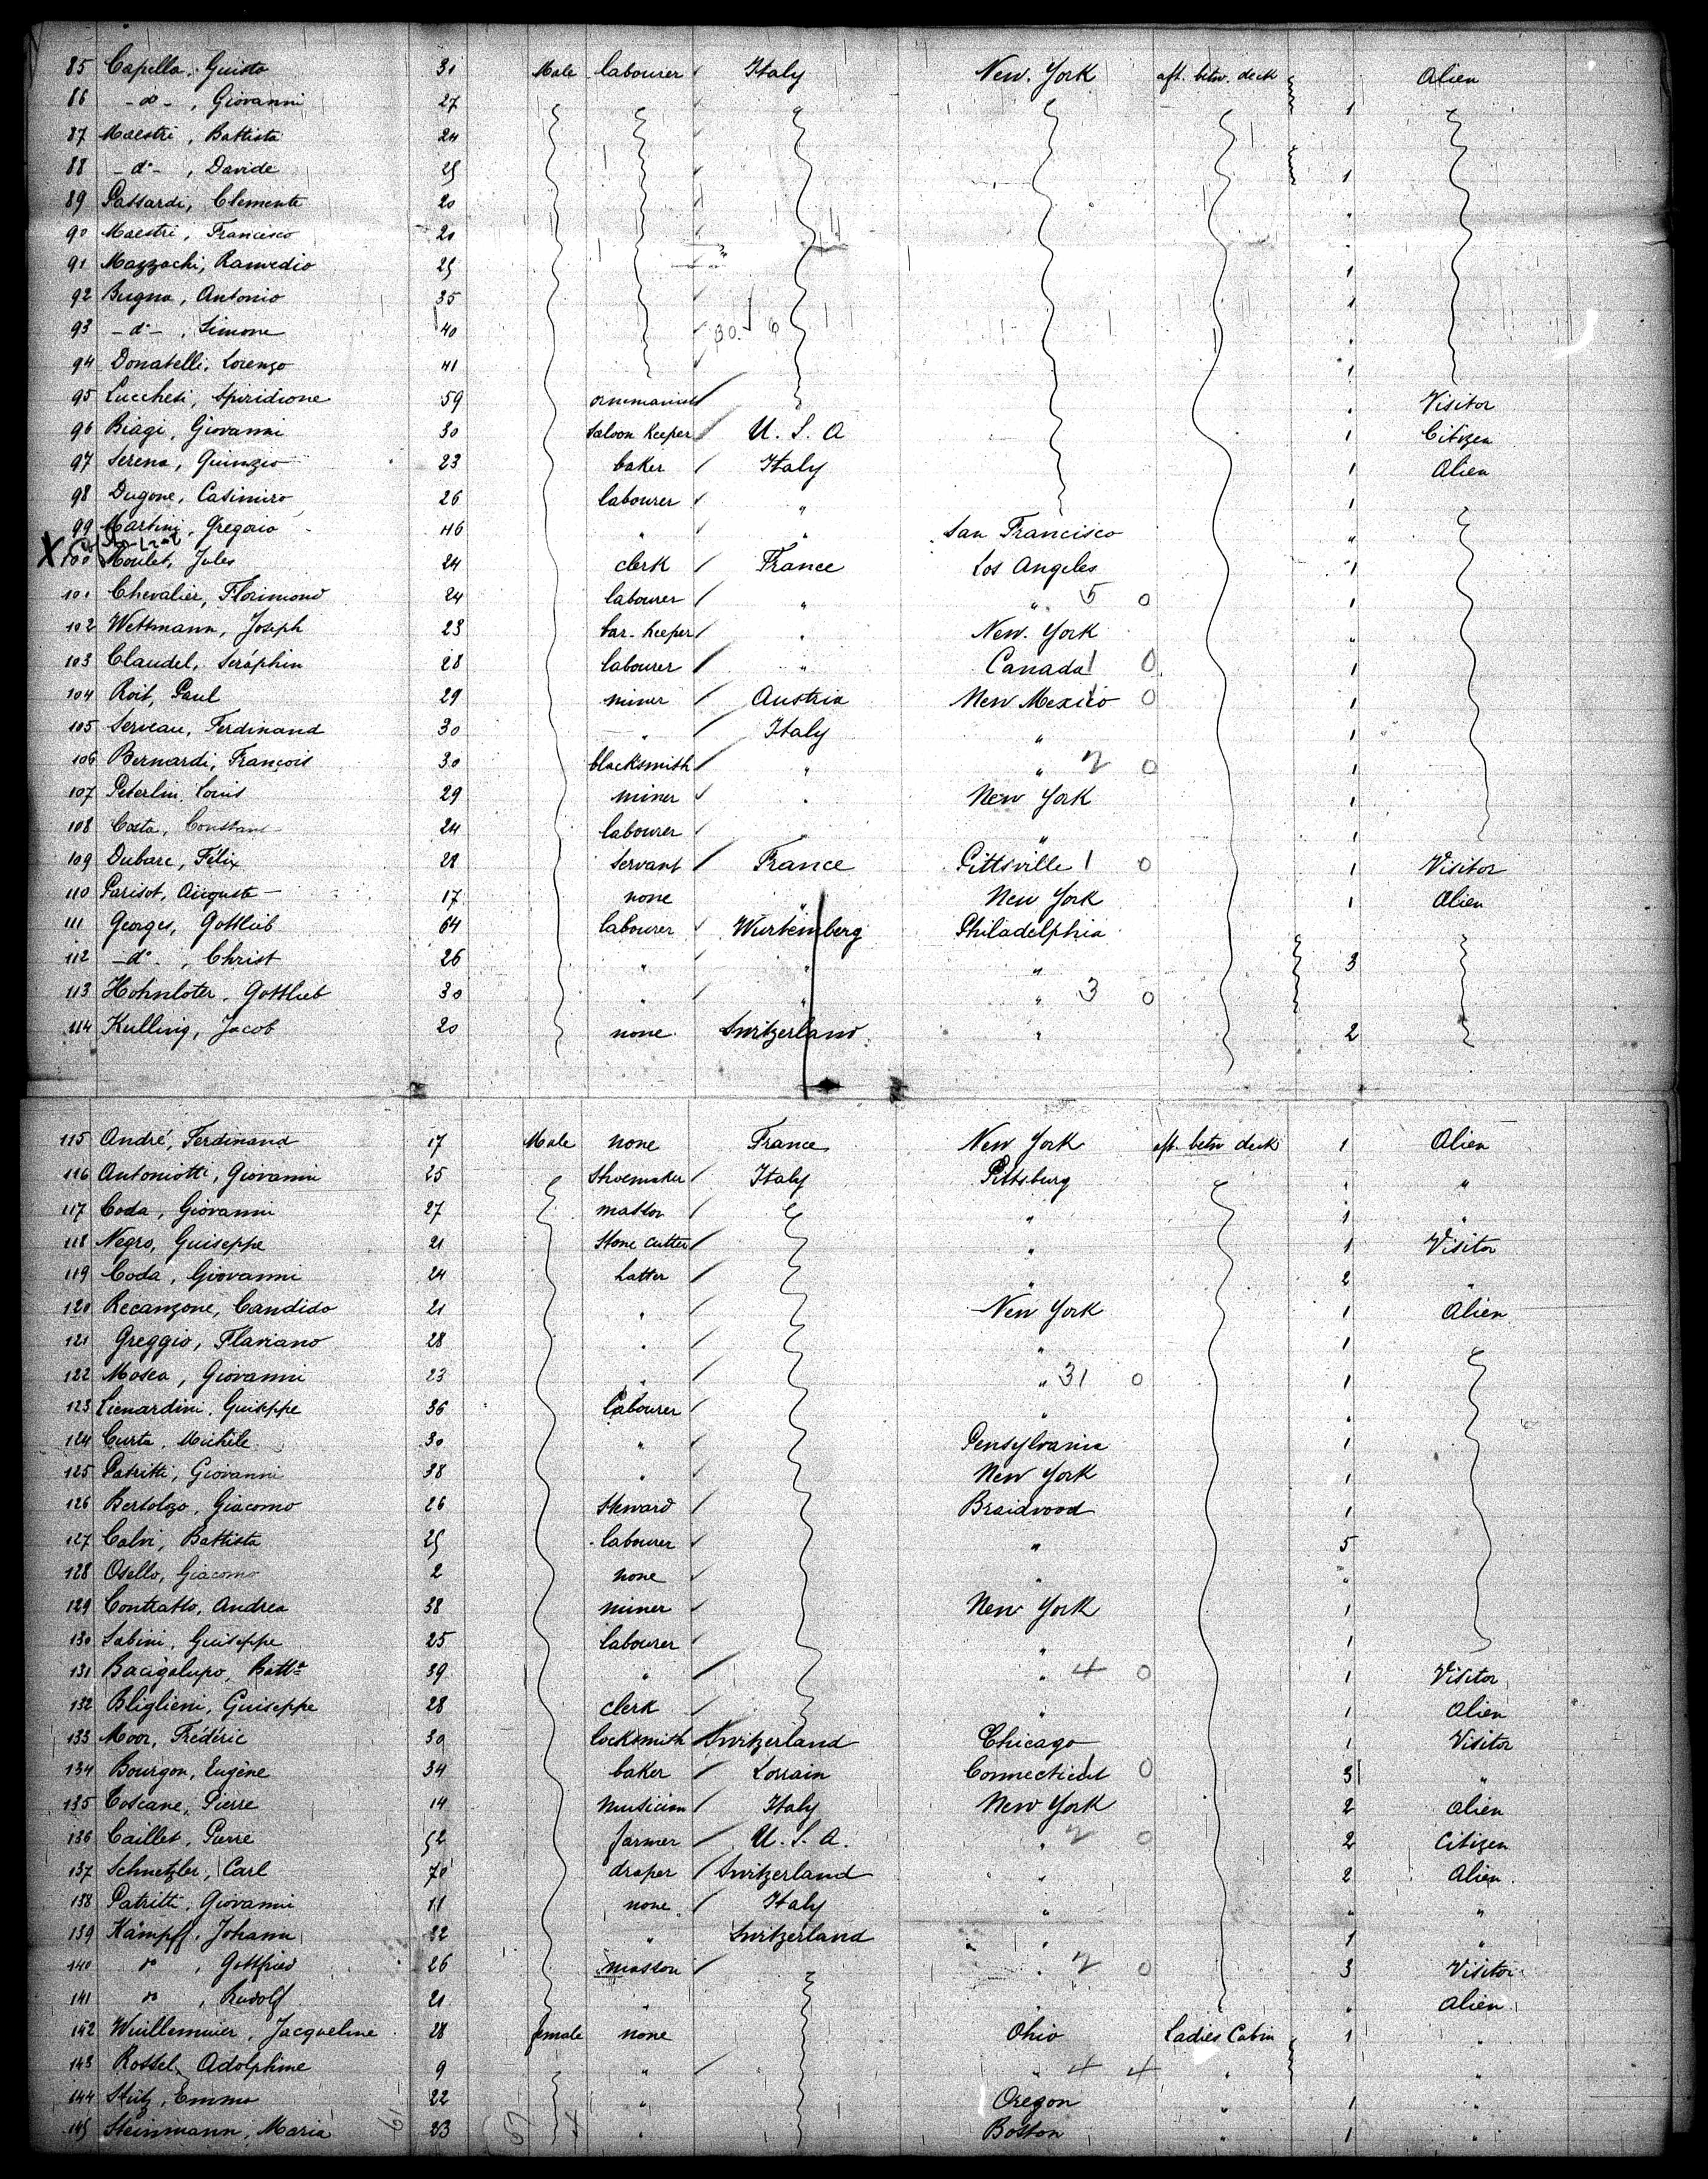 85 Capella, Guisto 31 Male labourer Italy New. York aft. betw. deck Alien
86 -do- , Giovanni 27 1
87 Maestri, Battista 24
88 -do- , Davide 25 1
89 Passardi, Clemente 20
90 Maestri, Francisco 20
91 Mazzachi, Ramedio 25 1
92 Bugna, Antonio 35 1
93 -do- , Simone 40
94 Donatelli, Lorenzo 41 1
95 Lucchesi, Spiridione 59 " Visitor
96 Biagi, Giovanni 30 Saloon Keeper U. S. A 1 Citizen
97 Serena, Quinzio 23 baker Italy 1 Alien
98 Dugone, Casimiro 26 labourer " 1
99 Martini, Gregorio 46 " " San Francisco "
X 100 Moulet, Jules 24 clerk France Los Angeles 1
101 Chevalier, Florimond 24 labourer " " 5 0 1
102 Wettmann, Joseph 23 bar-Keeper " New. York "
103 Claudel, Seráphin 28 labourer " Canada 1 0 1
104 Roit, Paul 29 miner Austria New Mexico 0 1
105 Serveau, Ferdinand 30 " Italy " 1
106 Bernardi, François 30 blacksmith " " 2 0 1
107 Peterlin, Louis 29 miner " New York 1
108 Costa, Constant 24 labourer " " 1
109 Dubarc, Félix 28 Servant France Pittsville 1 0 1 Visitor
110 Parisot, Auguste 17 none " New York 1 Alien
111 Georges, Gottlieb 64 labourer Wurtemberg Philadelphia
112 -do- , Christ 26 " " " 3
113 Hohnloter, Gottlieb 30 " " " 3 0
114 Kulling, Jacob 20 none Switzerland " 2
115 André, Ferdinand 17 Male none France New York aft. betw deck 1 Alien
116 Antoniotti, Giovanni 25 Shoemaker Italy Pittsburg 1 "
117 Coda, Giovanni 27 masson " 1 "
118 Negro, Guiseppe 21 Stone cutter " 1 Visitor
119 Coda, Giovanni 24 hatter " 2 "
120 Recanzone, Candido 21 " New York 1 Alien
121 Greggio, Flaviano 28 " " 1
122 Mosca, Giovanni 23 " " 31 0 1
123 Lienardini, Guiseppe 36 Labourer " "
124 Curta, Michele 30 " Pensylvania 1
125 Patritti, Giovanni 38 " New York 1
126 Bertolzo, Giacomo 26 Steward Braidwood 1
127 Calvi, Battista 25 labourer " 5
128 Osello, Giacomo 2 none " "
129 Contratto, Andrea 38 miner New York 1
130 Sabini, Guiseppe 25 labourer " 1
131 Bacigalupo, Batta 39 " " 4 0 1 Visitor
132 Bliglieni, Guiseppe 28 clerk " 1 Alien
133 Moor, Frédéric 30 locksmith Switzerland Chicago 1 Visitor
134 Bourgon, Eugène 34 baker Lorrain Connecticut 0 3 "
135 Toscane, Pierre 14 musician Italy New York 2 Alien
136 Caillet, Pierre 52 farmer U. S. A. " 2 0 2 Citizen
137 Schnetzler, Carl 70 draper Switzerland " 2 Alien
138 Patritti, Giovanni 11 none Italy " " "
139 Kämpff, Johann 32 " Switzerland " 1 "
140 do , Gottfried 26 masson " 2 0 3 Visitor
141 do , Rudolf 21 " " " Alien
142 Wuillemuier, Jacqueline 28 female none Ohio Ladies Cabin 1 "
143 Rossel, Adolphine 9 " " 4 4 " "
144 Stutz, Emma 22 " Oregon " 1 "
145 Steinmann, Maria 33 " Boston " 1 "